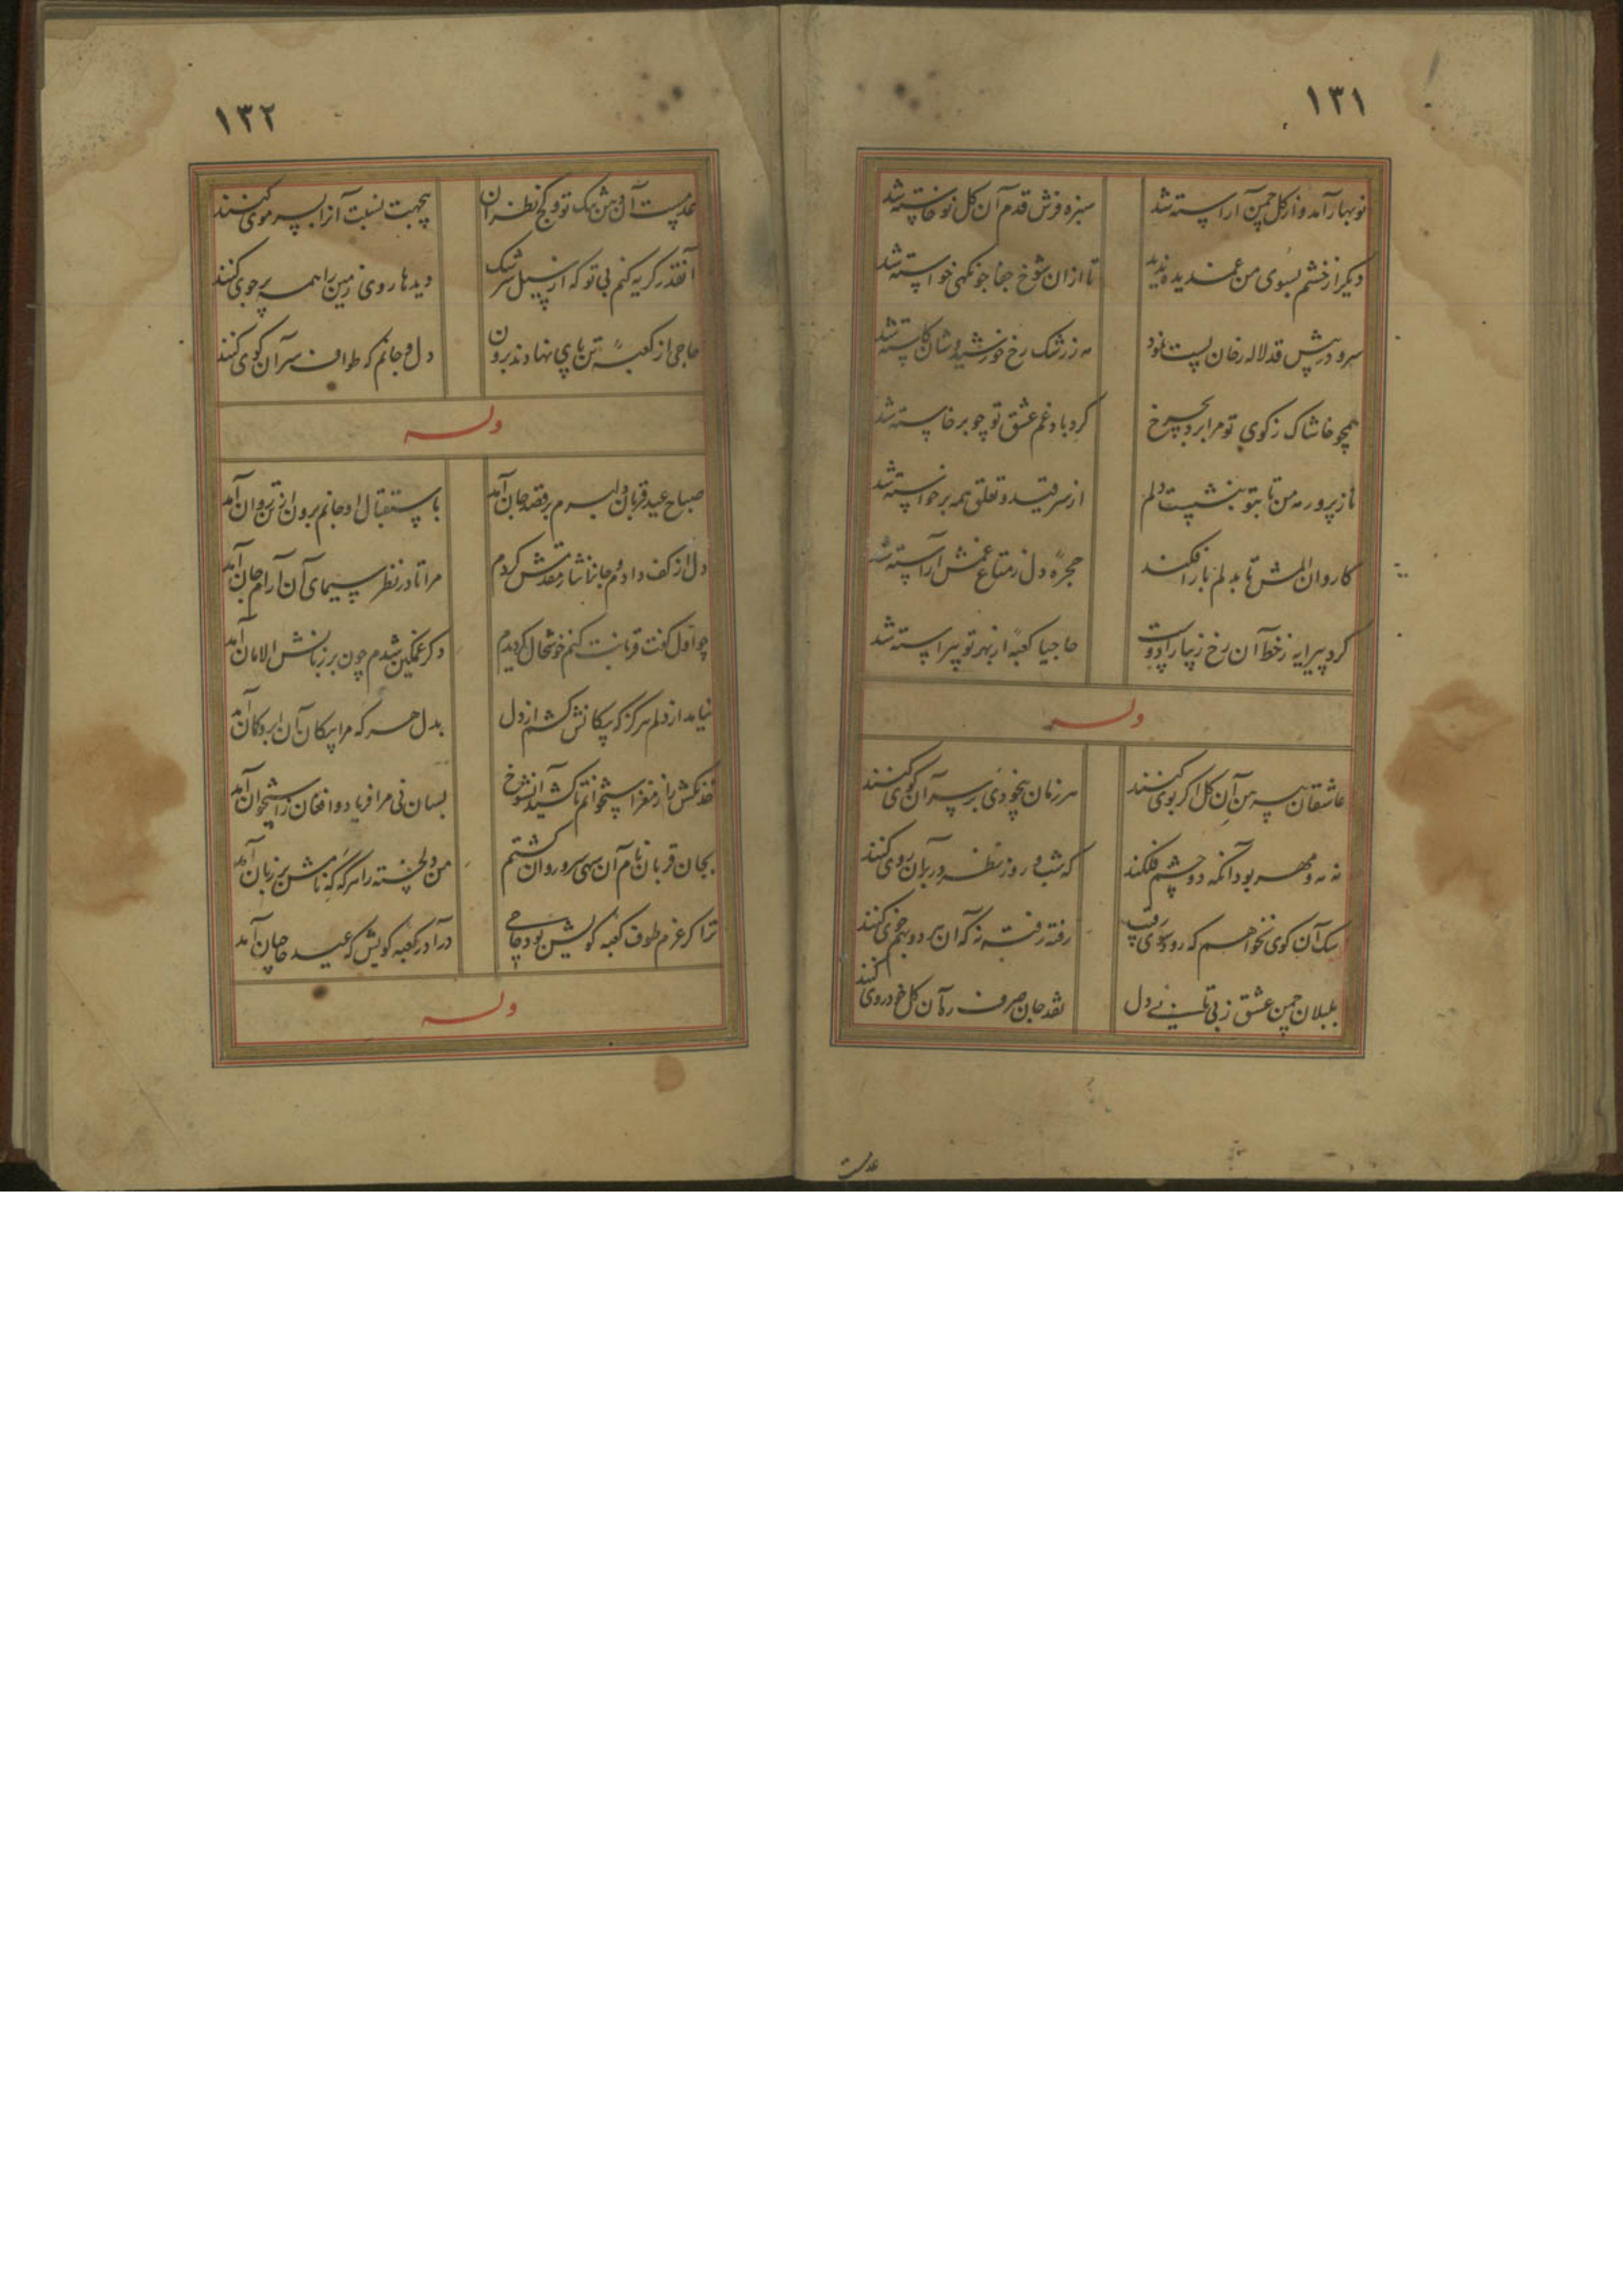 ۱۳۱
نوبهار آمد و از گل چمن آراسته شد
سبزه فرش قدم آن گل نوخاسته شد
دیگر از خشم بسوی من غمدیده ندید
تا ازان شوخ جفاجو نگهی خواسته شد
سرو در پیش قد لاله رخان پست نمود
مه ز رشک رخ خورشیدوشان کاسته شد
همچو خاشاک ز کوی تو مرا برد بچرخ
گردباد غم عشق تو چو برخاسته شد
نازپرور مه من تا بتو بنشست دلم
از سر قید و تعلق همه برخواسته شد
کاروان المش تا بدلم بار افکند
حجرهٔ دل ز متاع غمش آراسته شد
کرد پیرایه ز خط آن رخ زیبا را دوست
حاجیا کعبه از بهر تو پیراسته شد
وله
عاشقان پیرهن آن گل اگر بوی کنند
هر زمان بیخودی بر سر آن کوی کنند
نه مه و مهر بود آنکه دو چشم فلکند
که شب و روز نظر در بر آن روی کنند
سگ آن کوی نخواهم که رود سوی رقیب
رفته رفته نه که آن هر دو بهم خوی کنند
بلبلان چمن عشق ز بی تابی دل
نقد جان صرف ره آن گل خودروی کنند
عدمست
۱۳۲
عدمست آن دهن تنگ تو و کج نظران
بچه جهت نسبت آنرا بسر موی کنند
آنقدر گریه کنم بی تو که از سیل سرشک
دیدها روی زمین را همه پر جوی کنند
حاجی از کعبهٔ تن پای نهادند برون
دل و جانم که طواف سر آن کوی کنند
وله
صباح عید قربان دلبرم برقصد جان آمد
باستقبال او جانم برون از تن روان آمد
دل از کف دادم و جان نثار مقدمش کردم
مرا تا در نظر سیمای آن آرام جان آمد
چو اول گفت قربانت کنم خوشحال گردیدم
دگر غمگین شدم چون بر زبانش الامان آمد
نیامد از دلم هرگز که پیکانش کشم از دل
بدل هر که مرا پیکان آن ابروکمان آمد
خدنگش را ز مغز استخوانم تا کشید آن شوخ
بسان نی مرا فریاد و افغان ز استخوان آمد
بجان قربان نام آن سهی سرو روان گشتم
من دلخسته را هرگه که نامش بر زبان آمد
ترا گر عزم طوف کعبه کویش بود حاجی
درآ در کعبه کویش که عید حاجیان آمد
وله